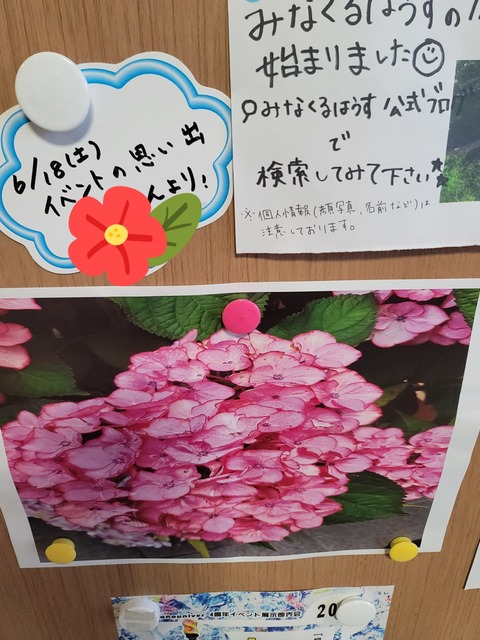 6/18(土)
イベントの思い出
んより!
みなくるはうすの
始まりました
みなくるはうす 公式ブログ
で
検索してみて下さい
※個人情報(顔写真、名前など)は
注意しております。
4周年イベント展示即売会
20